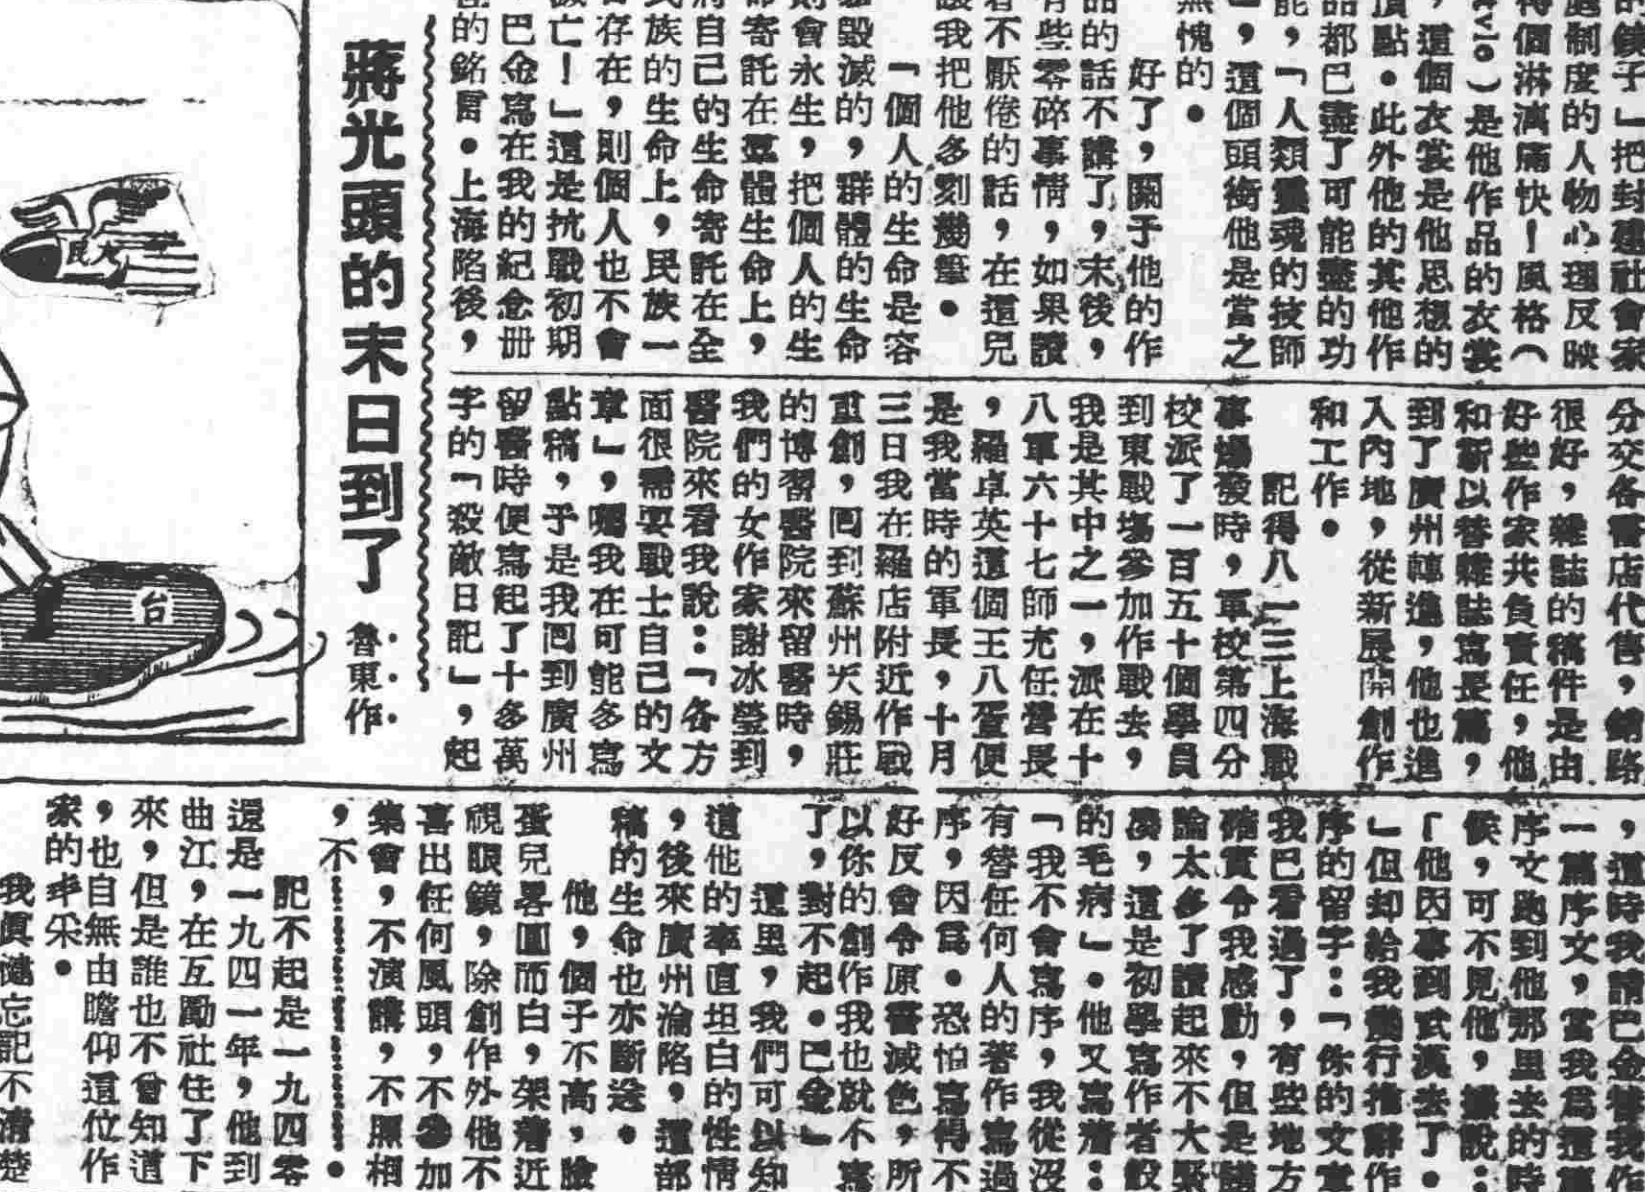 的鏡子」把封建社會家
制度的人物心理反映
得個淋漓痛快！風格（
）是他作品的衣裳
，這個衣裳是他思想的
頂點。此外他的其他作
品都已盡了可能盡的功
能，「人類靈魂的技師
」，這個頭銜他是當之
無愧的。
好了，關于他的作
品的話不講了，末後，
有些零碎事情，如果讀
者不厭倦的話，在這兒
讓我把他多刻幾筆。
「個人的生命是容
毀滅的，群體的生命
則會永生，把個人的生
命寄託在羣體生命上，
將自己的生命寄託在全
民族的生命上，民族一
存在，則個人也不會
滅亡！」這是抗戰初期
巴金寫在我的紀念冊
的銘言。上海陷後，
分交各書店代售，銷路
很好，雜誌的稿件是由
好些作家共負責任，他
和靳以替雜誌寫長篇，
到了廣州轉進，他也進
入內地，從新展開創作
和工作。
記得八一三上海戰
事爆發時，軍校第四分
校派了一百五十個學員
到東戰場參加作戰去，
我是其中之一，派在十
八軍六十七師充任營長
，羅卓英這個王八蛋便
是我當時的軍長，十月
三日我在羅店附近作戰
重創，囘到蘇州天錫莊
的博習醫院來留醫時，
我們的女作家謝冰瑩到
醫院來看我說：「各方
面很需要戰士自己的文
章」，囑我在可能多寫
點稿，乎是我囘到廣州
留醫時便寫起了十多萬
字的「殺敵日記」，起
蔣光頭的末日到了
魯東作
美
民
台
，這時我請巴金替我作
一篇序文，當我爲這篇
序文跑到他那里去的時
候，可不見他，據說：
「他因事到武漢去了。
」但却給我幾行推辭作
序的留字：「你的文章
我已看過了，有些地方
確實令我感動，但是議
論太多了讀起來不大緊
湊，這是初學寫作者設
的毛病」。他又寫着：
「我不會寫序，我從沒
有替任何人的著作寫過
序，因爲。恐怕寫得不
好反會令原書減色，所
以你的創作我也就不寫
了，對不起。巴金」
這里，我們可以知
道他的率直坦白的性情
，後來廣州淪陷，這部
稿的生命也亦斷送。
他，個子不高，臉
蛋兒畧圓而白，架着近
視眼鏡，除創作外他不
喜出任何風頭，不參加
集會，不演講，不照相
，不………………。
記不起是一九四零
還是一九四一年，他到
曲江，在互勵社住了下
來，但是誰也不會知道
，也自無由瞻仰這位作
家的丰采。
我眞健忘記不清楚